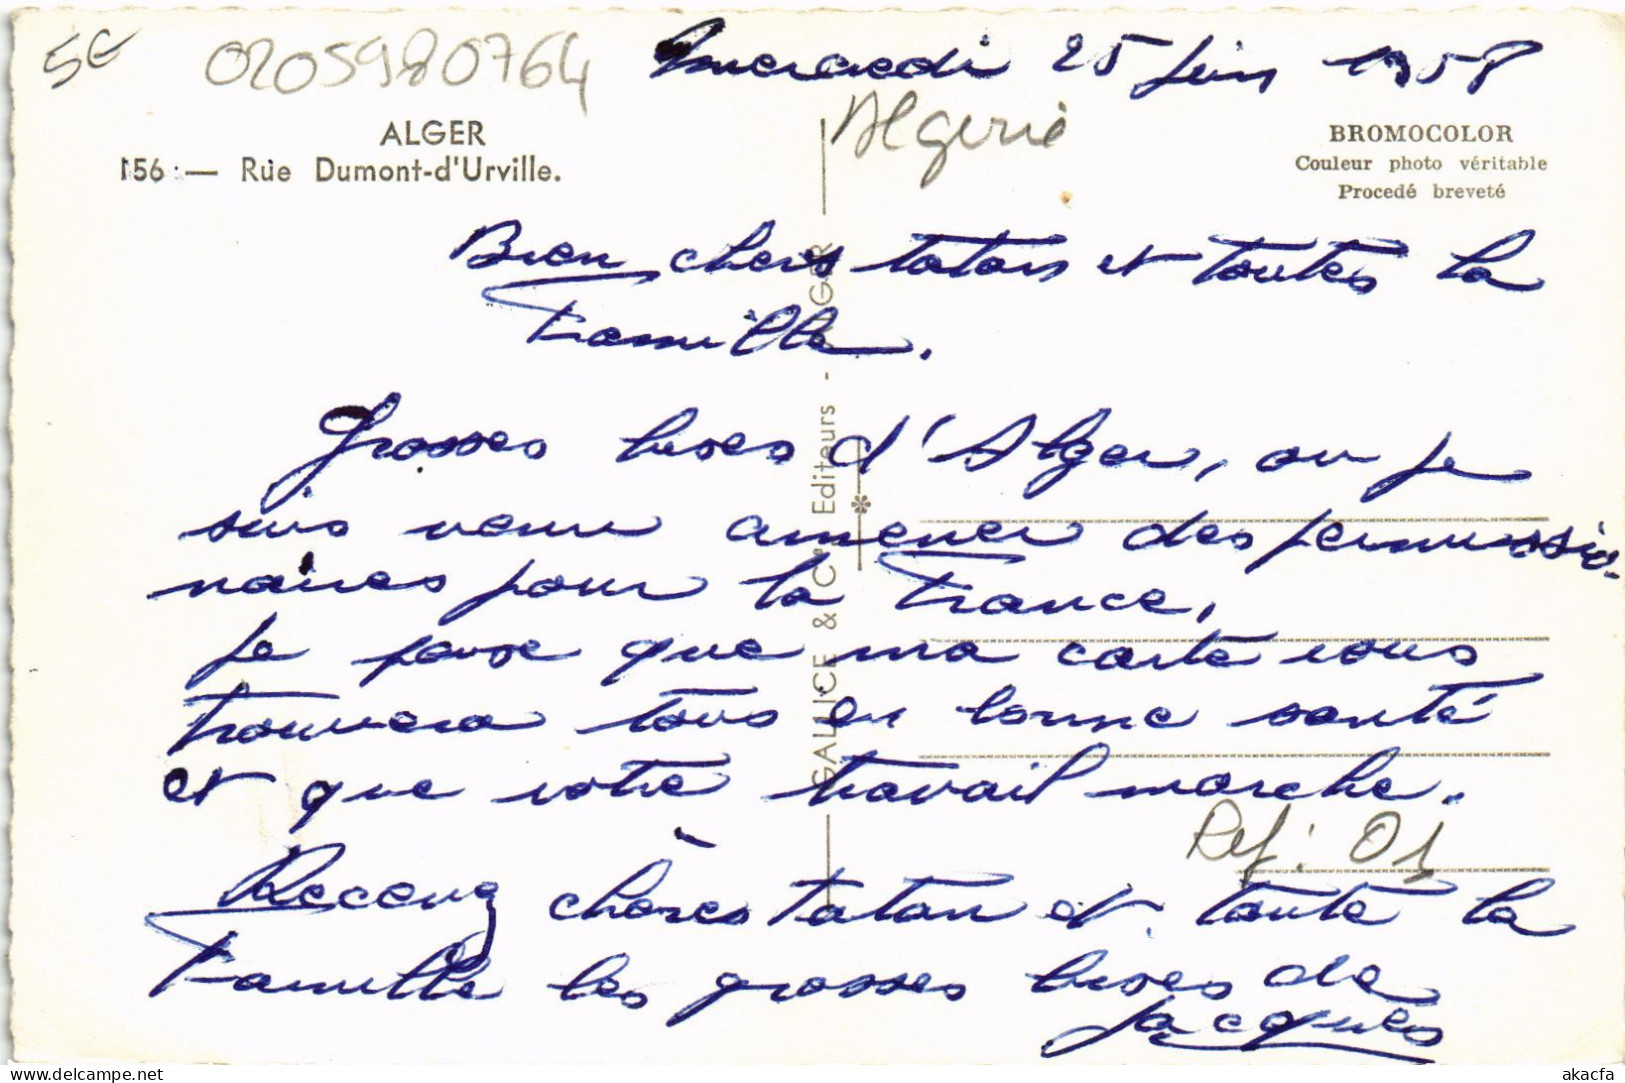 5€
0205980764
mercredi 25 juin 1958
Algerie
ALGER
156 — Rue Dumont-d'Urville.
BROMOCOLOR
Couleur photo véritable
Procedé breveté
GALLICE & Cie Editeurs - ALGER
Bien chers tatan et toutes la
Famille.
Grosses bises d'Alger, ou je
suis venu amener des permissio-
naires pour la France,
je pense que ma carte vous
trouvera tous en bonne santé
et que votre travail marche.
Ref: 01
Recevez chères tatan et toute la
Famille les grosses bises de
Jacques
delcampe.net
akacfa